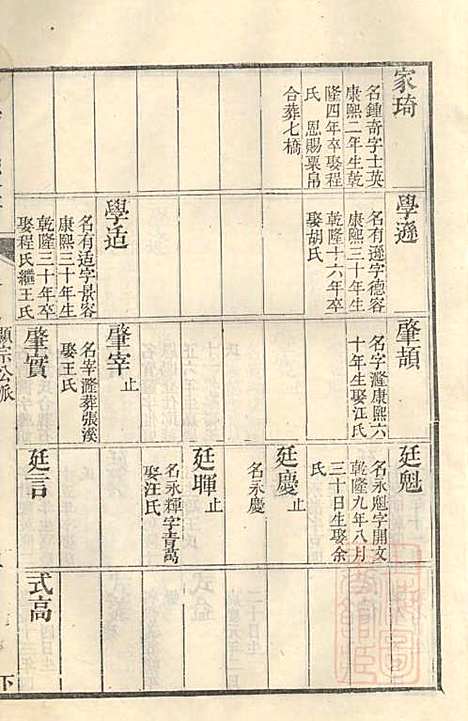 家琦
名鍾奇字士英
康熙二年生乾
隆四年卒娶程
氏 恩賜粟帛
合葬七橋
學遜
名有遜字德容
康熙三十年生
乾隆十六年卒
娶胡氏
學适
名有适字景容
康熙三十年生
乾隆三十年卒
娶程氏繼王氏
肇頡
名字瀊康熙六
十年生娶江氏
肇宰止
名宰瀊葬張溪
娶王氏
肇實
廷魁
名永魁字開文
乾隆九年八月
三十日生娶余
氏
廷慶止
名永慶
廷暉止
名永輝字青萬
娶汪氏
廷言
式高
顯宗公派
下